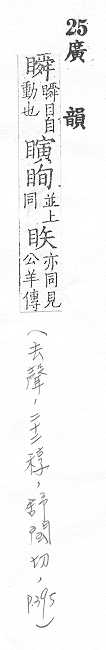 25 廣韻
瞬瞬目自動也瞚眴並上同眣亦同見公羊傳
(去聲，二十二稕，舒閏切，P.395)